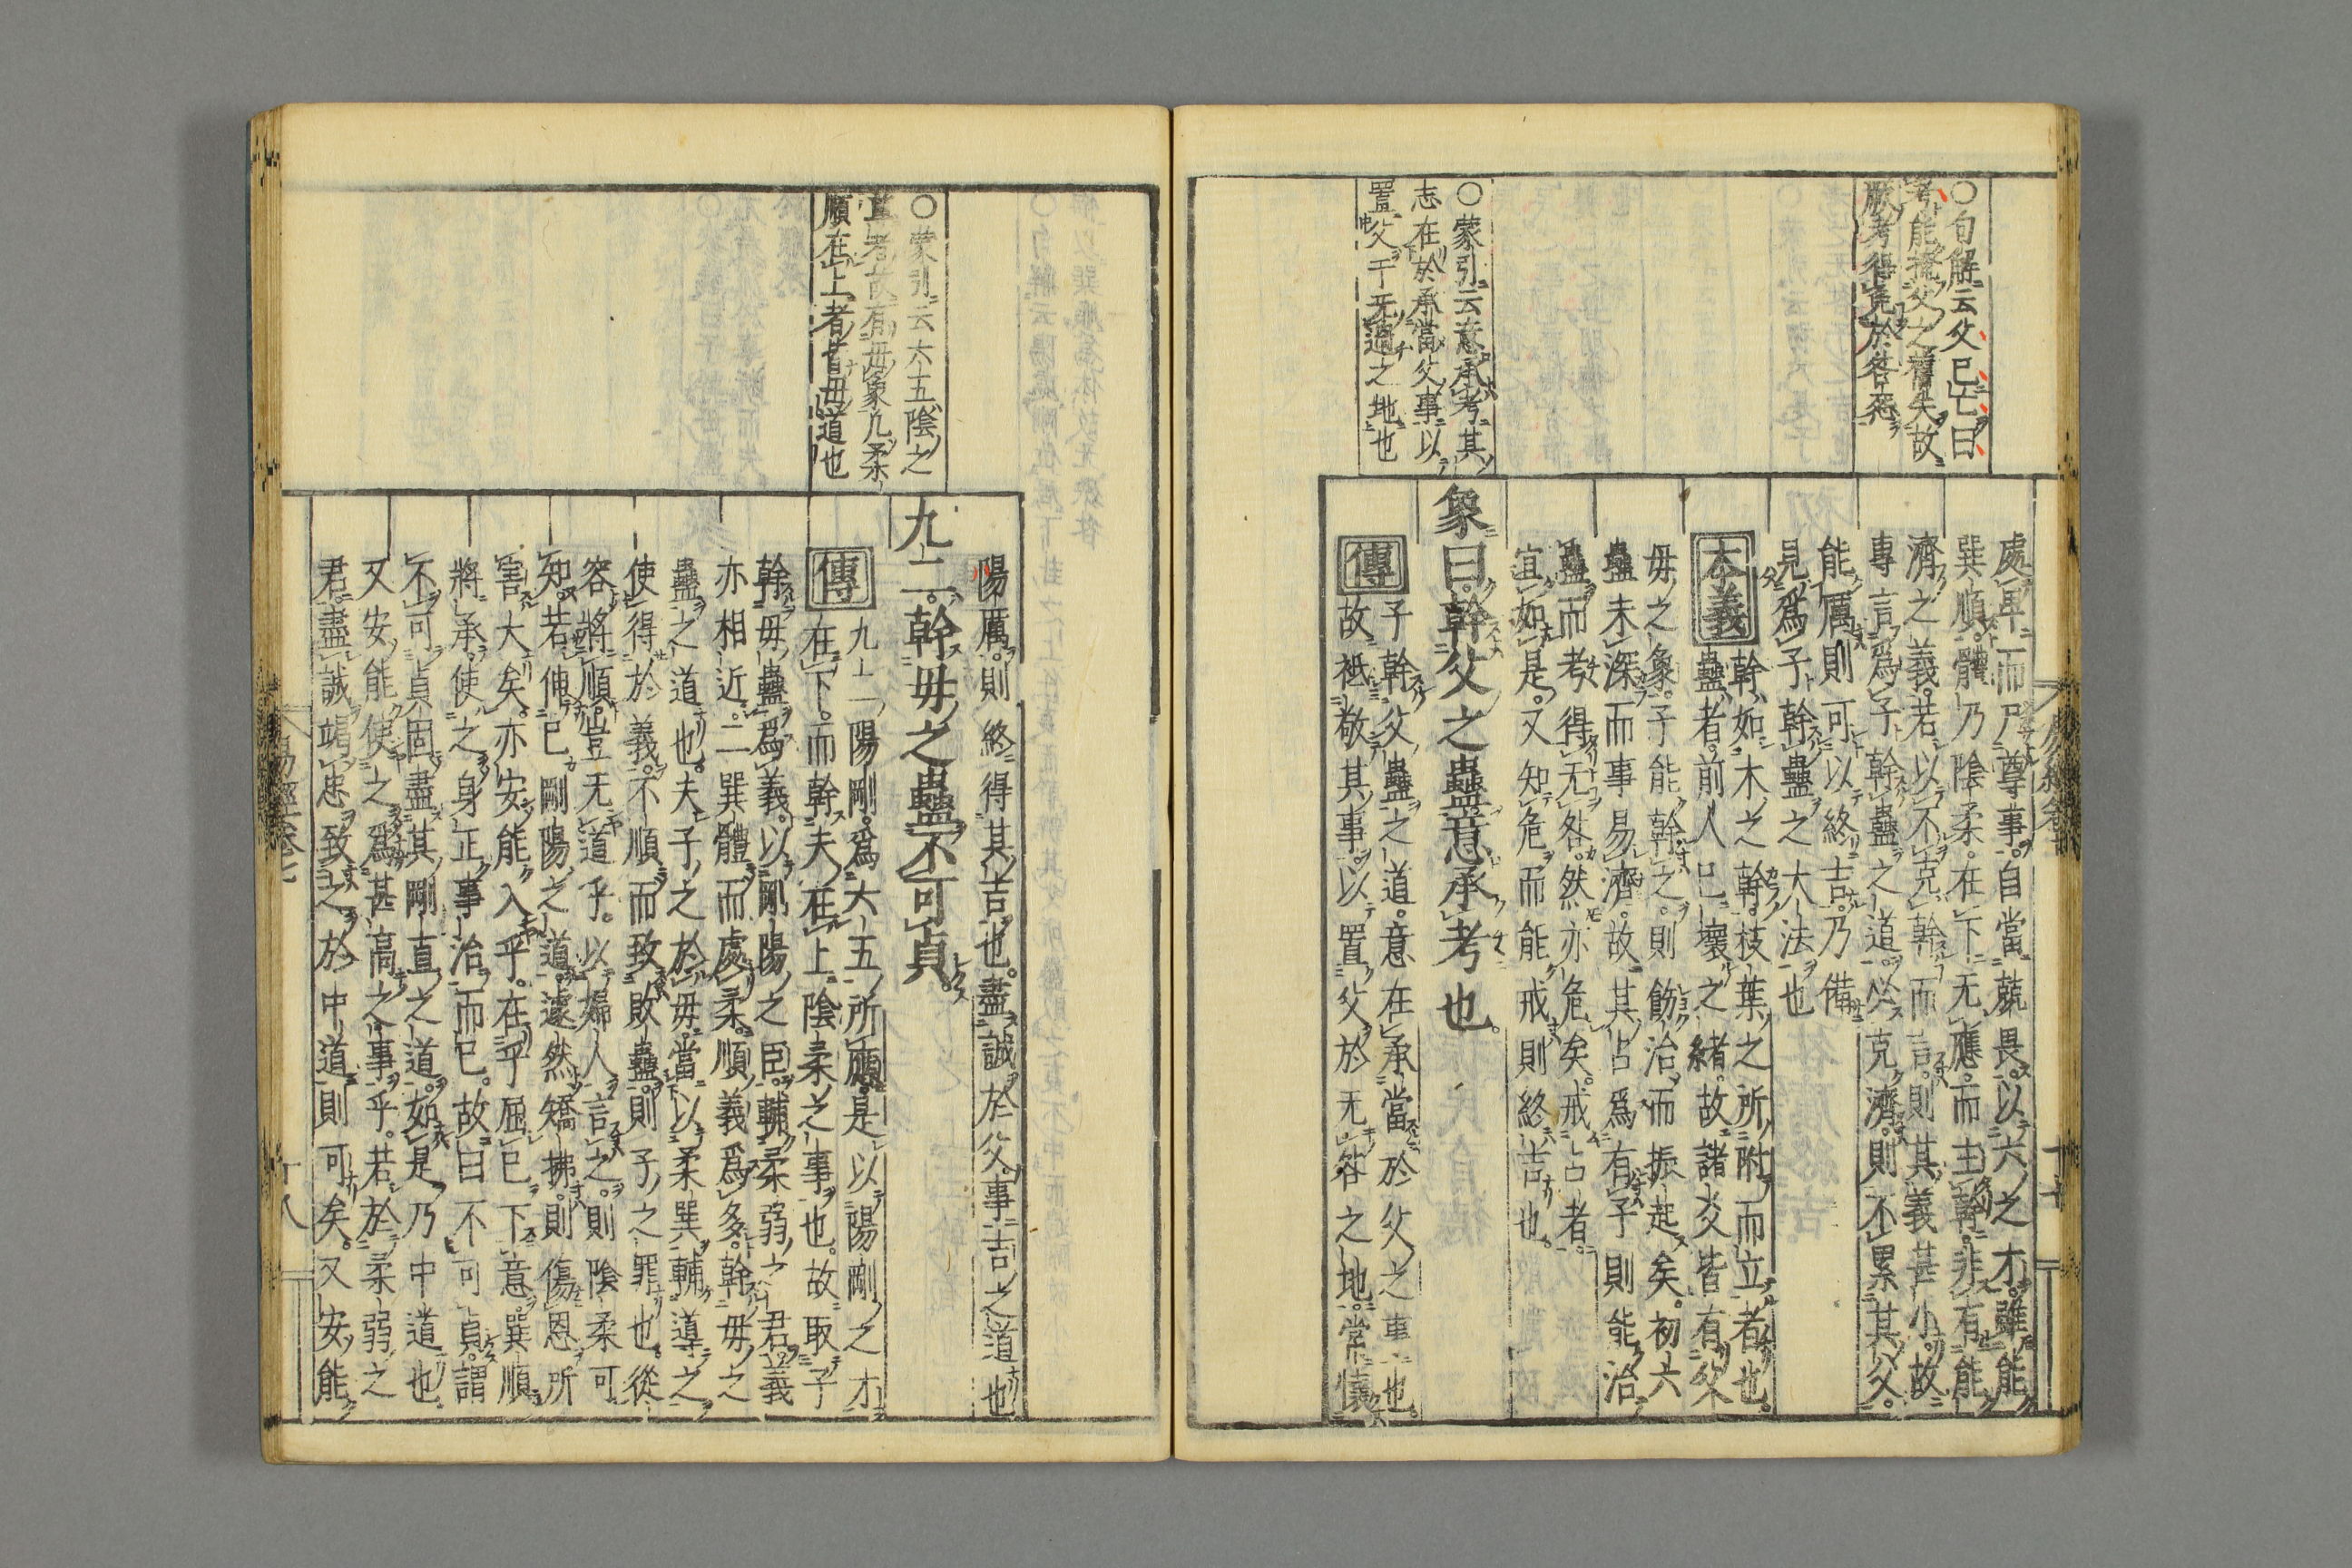 〇句解云父已亡曰
考能掩父之舊失故
厥考得免於咎惡
處卑而尸尊事自當兢畏以六之才雖能
巽順體乃陰柔在下无應而主幹非有能
濟之義若以不克幹而言則其義甚小故
專言爲子幹蠱之道必克濟則不累其父
能厲則可以終吉乃備
見爲子幹蠱之大法也
本義
幹如木之幹枝葉之所附而立者也
蠱者前人已壞之緒故諸爻皆有父
母之象子能幹之則飭治而振起矣初六
蠱未深而事易濟故其占爲有子則能治
蠱而考得无咎然亦危矣戒占者
宜如是又知危而能戒則終吉也
〇蒙引云意承考其
志在於承當父事以
置父于无過之地也
象曰幹父之蠱意承考也
傳
子幹父蠱之道意在承當於父之事也
故祗敬其事以置父於无咎之地常懷
陽厲則終得其吉也盡誠於父事吉之道也
〇蒙引云六五陰之
尊者故有母象凡柔
順在上者皆母道也
九二幹母之蠱不可貞
傳
九二陽剛爲六五所應是以陽剛之才
在下而幹夫在上陰柔之事也故取子
幹母蠱爲義以剛陽之臣輔柔弱之君義
亦相近二巽體而處柔順義爲多幹母之
蠱之道也夫子之於母當以柔巽輔導之
使得於義不順而致敗蠱則子之罪也從
容將順豈无道乎以婦人言之則陰柔可
知若伸已剛陽之道遽然矯拂則傷恩所
害大矣亦安能入乎在乎屈已下意巽順
將承使之身正事治而已故曰不可貞謂
不可貞固盡其剛直之道如是乃中道也
又安能使之爲甚高之事乎若於柔弱之
君盡誠竭忠致之於中道則可矣又安能
易經卷七
十八